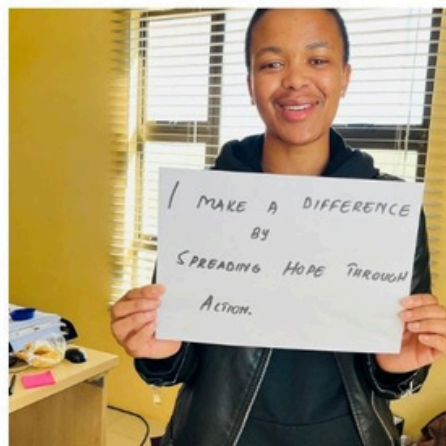 I MAKE A DIFFERENCE
BY
SPREADING HOPE THROUGH
ACTION.